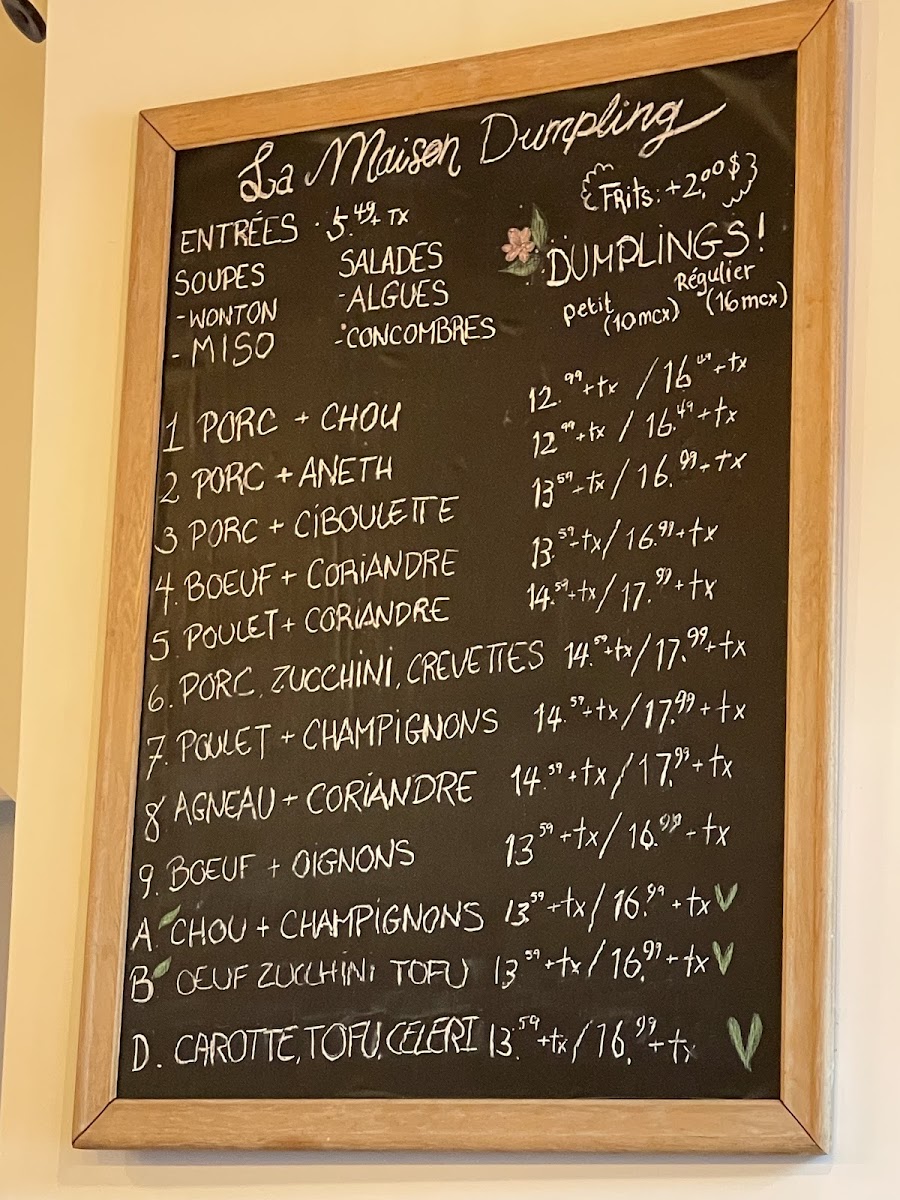 La Maison Dumpling
Frits: +2.00$
ENTRÉES · 5.49 + TX
SOUPES
- WONTON
- MISO
SALADES
- ALGUES
- CONCOMBRES
DUMPLINGS!
petit (10mcx)
Régulier (16mcx)
1 PORC + CHOU 12.99 + tx / 16.49 + tx
2 PORC + ANETH 12.99 + tx / 16.49 + tx
3 PORC + CIBOULETTE 13.59 + tx / 16.99 + tx
4. BOEUF + CORIANDRE 13.59 + tx / 16.99 + tx
5. POULET + CORIANDRE 14.59 + tx / 17.99 + tx
6. PORC, ZUCCHINI, CREVETTES 14.59 + tx / 17.99 + tx
7. POULET + CHAMPIGNONS 14.59 + tx / 17.99 + tx
8 AGNEAU + CORIANDRE 14.59 + tx / 17.99 + tx
9. BOEUF + OIGNONS 13.59 + tx / 16.99 + tx
A. CHOU + CHAMPIGNONS 13.59 + tx / 16.99 + tx V
B OEUF ZUCCHINI TOFU 13.59 + tx / 16.99 + tx V
D. CAROTTE, TOFU, CELERI 13.59 + tx / 16.99 + tx V